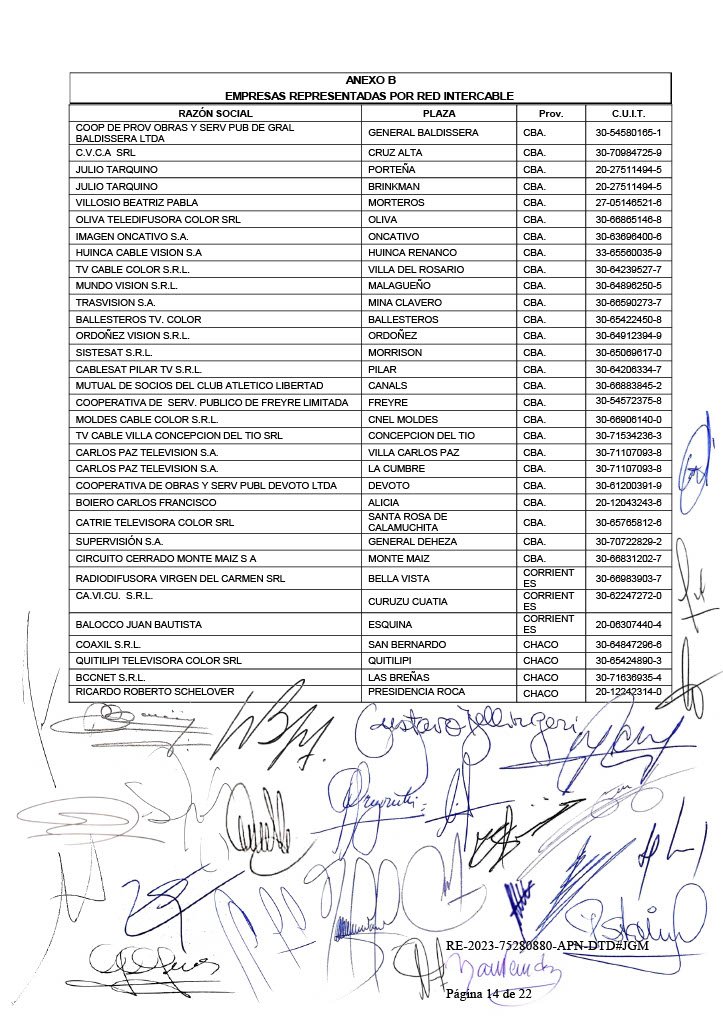 ANEXO B
EMPRESAS REPRESENTADAS POR RED INTERCABLE
RAZÓN SOCIAL PLAZA Prov. C.U.I.T.
COOP DE PROV OBRAS Y SERV PUB DE GRAL
BALDISSERA LTDA GENERAL BALDISSERA CBA. 30-54580165-1
C.V.C.A SRL CRUZ ALTA CBA. 30-70984725-9
JULIO TARQUINO PORTEÑA CBA. 20-27511494-5
JULIO TARQUINO BRINKMAN CBA. 20-27511494-5
VILLOSIO BEATRIZ PABLA MORTEROS CBA. 27-05146521-6
OLIVA TELEDIFUSORA COLOR SRL OLIVA CBA. 30-66865146-8
IMAGEN ONCATIVO S.A. ONCATIVO CBA. 30-63696400-6
HUINCA CABLE VISION S.A HUINCA RENANCO CBA. 33-65560035-9
TV CABLE COLOR S.R.L. VILLA DEL ROSARIO CBA. 30-64239527-7
MUNDO VISION S.R.L. MALAGUEÑO CBA. 30-64896250-5
TRASVISION S.A. MINA CLAVERO CBA. 30-66590273-7
BALLESTEROS TV. COLOR BALLESTEROS CBA. 30-65422450-8
ORDOÑEZ VISION S.R.L. ORDOÑEZ CBA. 30-64912394-9
SISTESAT S.R.L. MORRISON CBA. 30-65069617-0
CABLESAT PILAR TV S.R.L. PILAR CBA. 30-64206334-7
MUTUAL DE SOCIOS DEL CLUB ATLETICO LIBERTAD CANALS CBA. 30-66883845-2
COOPERATIVA DE SERV. PUBLICO DE FREYRE LIMITADA FREYRE CBA. 30-54572375-8
MOLDES CABLE COLOR S.R.L. CNEL MOLDES CBA. 30-66906140-0
TV CABLE VILLA CONCEPCION DEL TIO SRL CONCEPCION DEL TIO CBA. 30-71534236-3
CARLOS PAZ TELEVISION S.A. VILLA CARLOS PAZ CBA. 30-71107093-8
CARLOS PAZ TELEVISION S.A. LA CUMBRE CBA. 30-71107093-8
COOPERATIVA DE OBRAS Y SERV PUBL DEVOTO LTDA DEVOTO CBA. 30-61200391-9
BOIERO CARLOS FRANCISCO ALICIA CBA. 20-12043243-6
CATRIE TELEVISORA COLOR SRL SANTA ROSA DE
CALAMUCHITA CBA. 30-65765812-6
SUPERVISIÓN S.A. GENERAL DEHEZA CBA. 30-70722829-2
CIRCUITO CERRADO MONTE MAIZ S A MONTE MAIZ CBA. 30-66831202-7
RADIODIFUSORA VIRGEN DEL CARMEN SRL BELLA VISTA CORRIENT
ES 30-66983903-7
CA.VI.CU. S.R.L. CURUZU CUATIA CORRIENT
ES 30-62247272-0
BALOCCO JUAN BAUTISTA ESQUINA CORRIENT
ES 20-06307440-4
COAXIL S.R.L. SAN BERNARDO CHACO 30-64847296-6
QUITILIPI TELEVISORA COLOR SRL QUITILIPI CHACO 30-65424890-3
BCCNET S.R.L. LAS BREÑAS CHACO 30-71636935-4
RICARDO ROBERTO SCHELOVER PRESIDENCIA ROCA CHACO 20-12242314-0
Gustavo
RE-2023-75280880-APN-DTD#JGM
Página 14 de 22